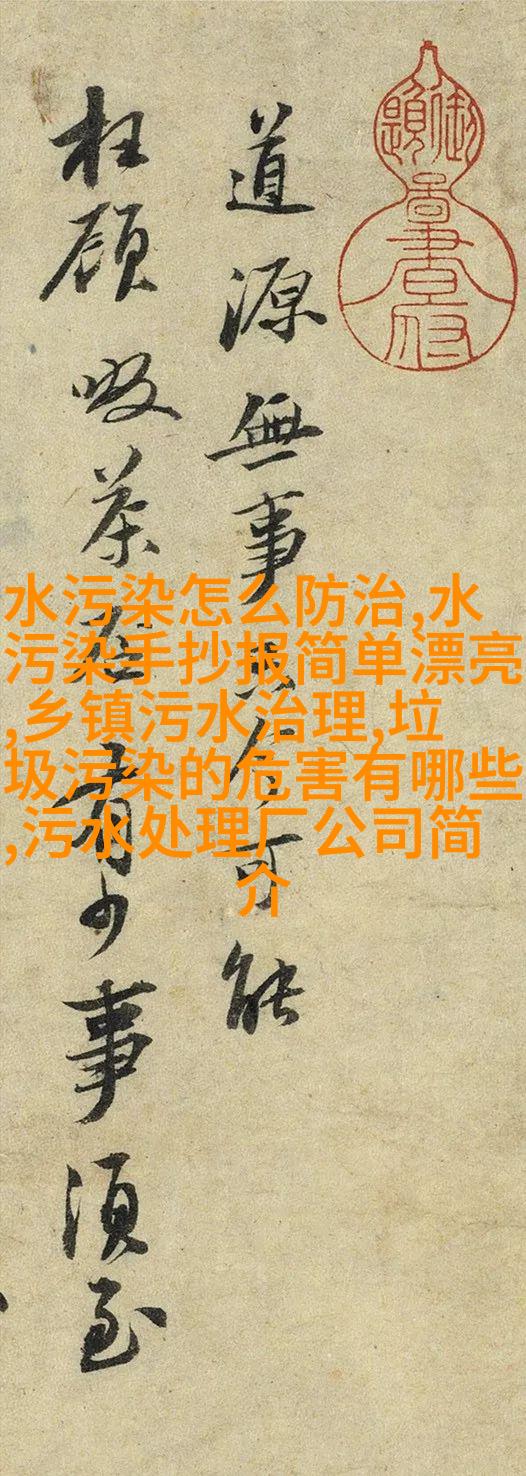 道源無事只今可能
枉顧啜茶否有少事須至
水污染怎么防治,水
污染手抄报简单漂亮
,乡镇污水治理,垃
圾污染的危害有哪些
,污水处理厂公司简
介